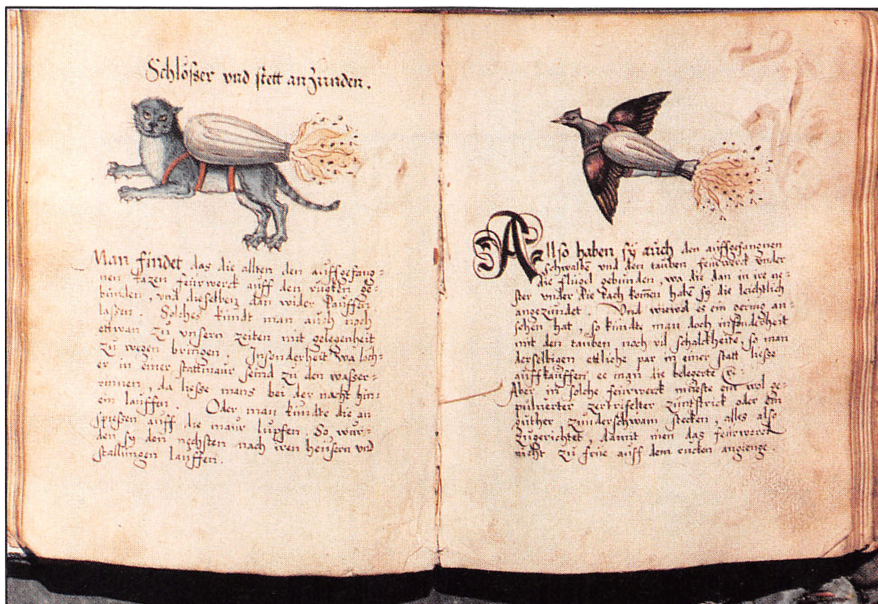 Schlösser vnd stett anzünden.
Man findet das die alten den auffgefang-
nen kazen feürwerck auff den rücken ge-
bünden, vnd dieselben dan wider lauffen
laßen. Solches kündt man auch noch
ettwan zu vnsern zeiten mit gelegenheit
zu wegen bringen. Insonderheit wa löch-
er in einer stattmaür seind zu den waßer-
rinnen, da ließe mans bei der nacht hin-
ein laüffen. Oder man kündte die an
spießen auff die maür lupfen. So wür-
den sy den nechsten nach iren heüsern vnd
stallüngen lauffen.
57
Allso haben sy auch den auffgefangnen
schwalbe vnd den tauben feürwerck vnder
die flügel gebünden, wa die dan in ire ne-
ster vnder die tach komen habe sy die leichtlich
angezündet. Vnd wiewol es ein gering an-
sehen hat, so kündte man doch insonderheit
mit den tauben noch vil schalckheit, so man
derselbigen ettliche par in einer statt ließe
auffkauffen, ee man die belegerte
Aber in solche feürwerck müeste ein wol ge-
pulverter zündtstrick oder ein
güther zünderschwam stecken, alles also
zügerichtet, damit inen das feürwerck
nicht zu früe auff dem rucken angienge.